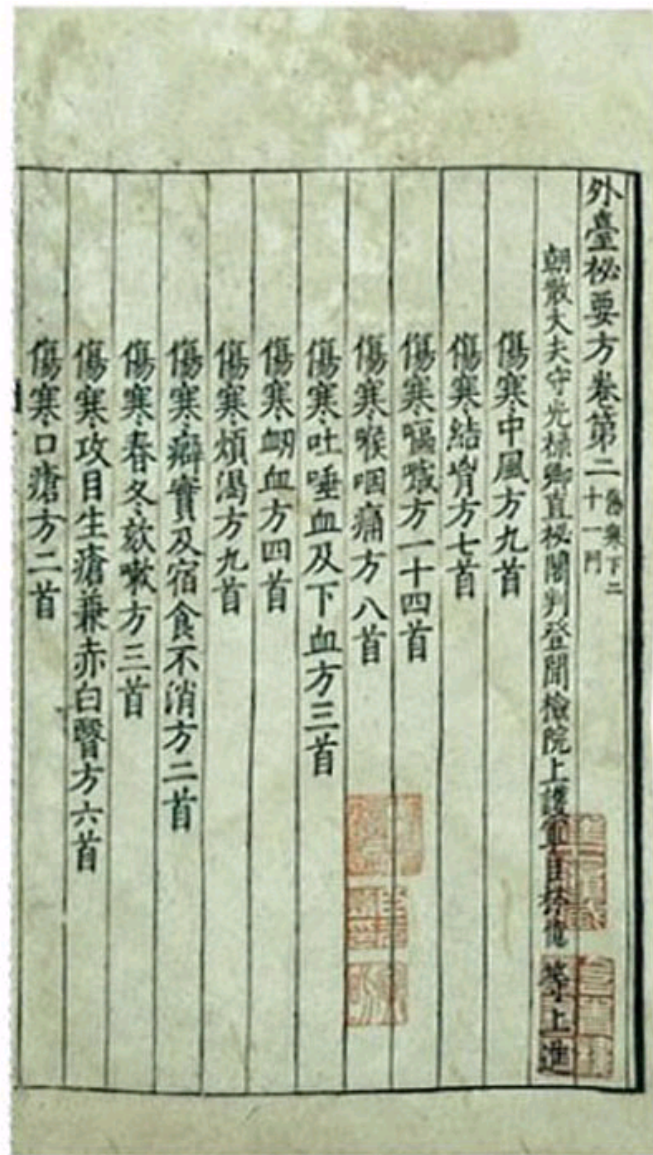 外臺祕要方卷第二 傷寒下二十一門
朝散大夫守光祿卿直祕閣判登聞檢院上護軍臣林億等上進
傷寒中風方九首
傷寒結胷方七首
傷寒嘔噦方一十四首
傷寒喉咽痛方八首
傷寒吐唾血及下血方三首
傷寒衂血方四首
傷寒煩渴方九首
傷寒癖實及宿食不消方二首
傷寒春冬欬嗽方三首
傷寒攻目生瘡兼赤白瞖方六首
傷寒口瘡方二首